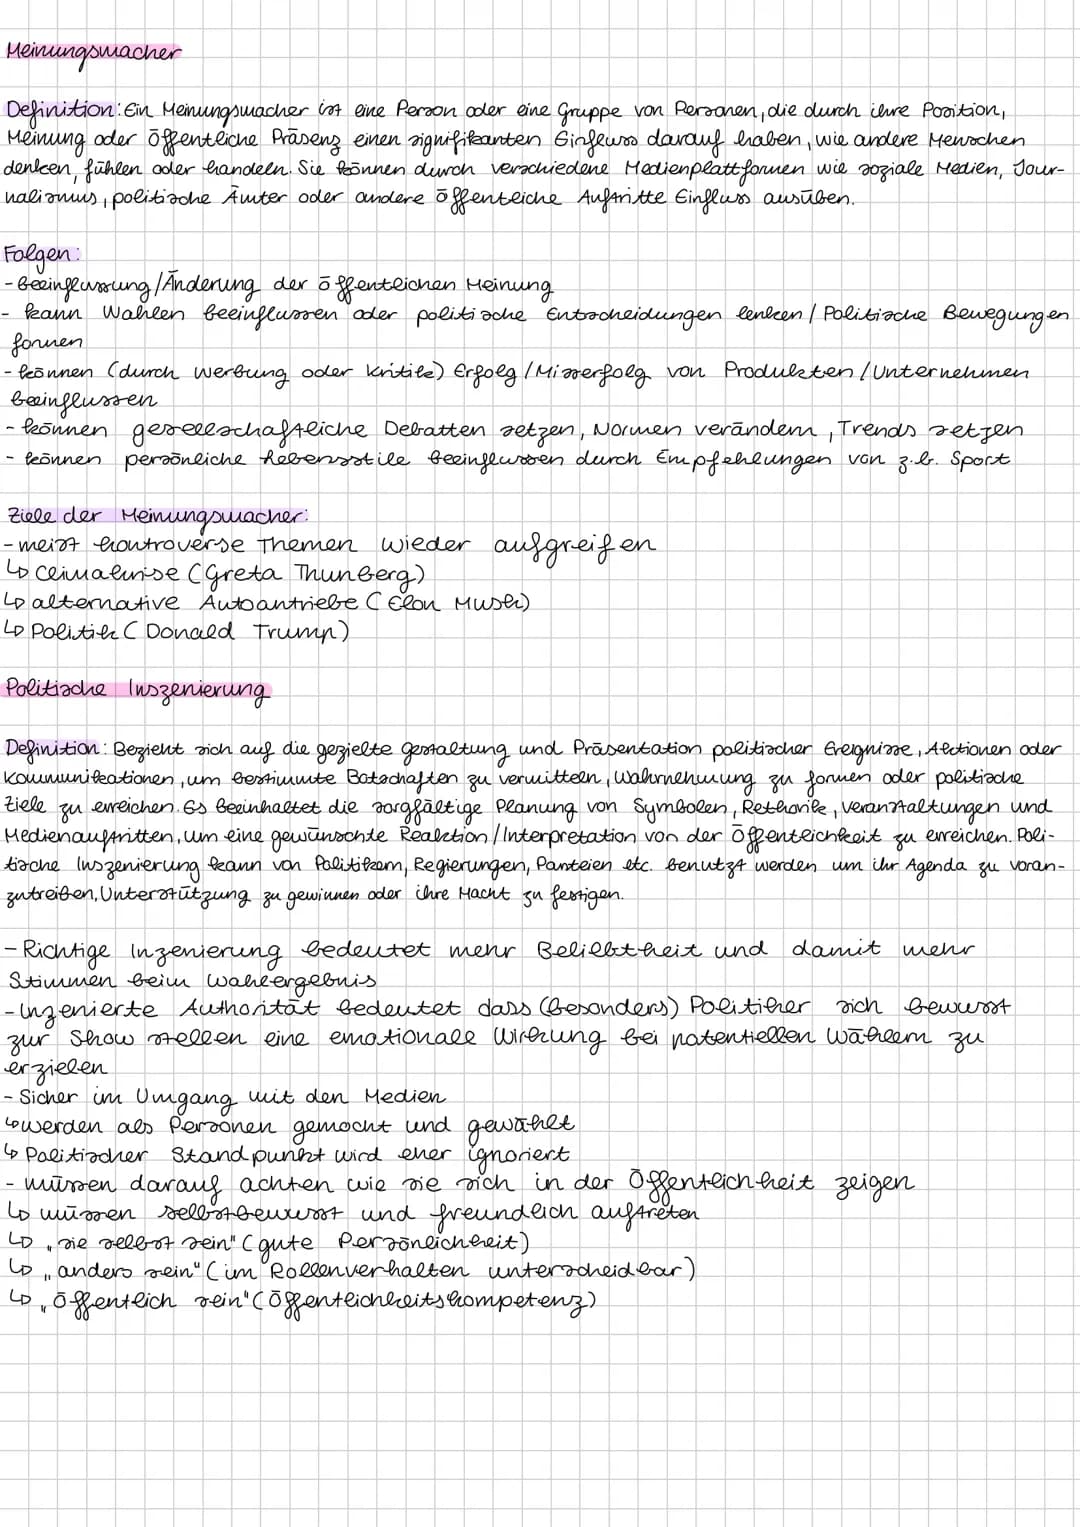 Meinungsmacher
Definition: Ein Meinungsmacher ist eine Person oder eine Gruppe von Personen, die durch ihre Position,
Meinung oder öffentliche Präsenz einen signifikanten Einfluss darauf haben, wie andere Menschen
denken, fühlen oder handeln. Sie können durch verschiedene Medienplattformen wie soziale Medien, Jour-
nalismus, politische Ämter oder andere öffentliche Auftritte Einfluss ausüben.
Folgen:
- Beeinflussung/Änderung der öffentlichen Meinung
- kann Wahlen beeinflussen oder politische Entscheidungen lenken / Politische Bewegungen
formen
- können (durch Werbung oder Kritik) Erfolg/Misserfolg von Produkten/Unternehmen
beeinflussen
- können gesellschaftliche Debatten setzen, Normen verändern, Trends setzen
- können persönliche Lebensstile beeinflussen durch Empfehlungen von z.b. Sport
Ziele der Meinungsmacher:
- meist kontroverse Themen wieder aufgreifen
↳ Climakrise (Greta Thunberg)
↳ alternative Autoantriebe (Elon Musk)
↳ Politik (Donald Trump)
Politische Inszenierung
Definition: Bezieht sich auf die gezielte gestaltung und Präsentation politischer Ereignisse, Aktionen oder
Kommunikationen, um bestimmte Botschaften zu vermitteln, Wahrnehmung zu formen oder politische
Ziele zu erreichen. Es beeinhaltet die sorgfältige Planung von Symbolen, Rethorik, Veranstaltungen und
Medienauftritten, um eine gewünschte Reaktion/Interpretation von der Öffentlichkeit zu erreichen. Poli-
tische Inszenierung kann von Politikern, Regierungen, Parteien etc. benutzt werden um ihr Agenda zu voran-
zutreiben, Unterstützung zu gewinnen oder ihre Macht zu festigen.
- Richtige Inzenierung bedeutet mehr Beliebtheit und damit mehr
Stimmen beim Wahlergebnis
- Inzenierte Authorität bedeutet dass (besonders) Politiker sich bewusst
zur Show stellen eine emotionale Wirkung bei potentiellen Wählern zu
erzielen
- Sicher im Umgang mit den Medien
↳ werden als Personen gemocht und gewählt
↳ Politischer Standpunkt wird eher ignoriert
- müssen darauf achten wie sie sich in der Öffentlichkeit zeigen
↳ müssen selbstbewusst und freundlich auftreten
↳ „sie selbst sein" (gute Persönlichkeit)
↳ „anders sein" (im Rollenverhalten unterscheidbar)
↳ „öffentlich sein" (Öffentlichkeitskompetenz)